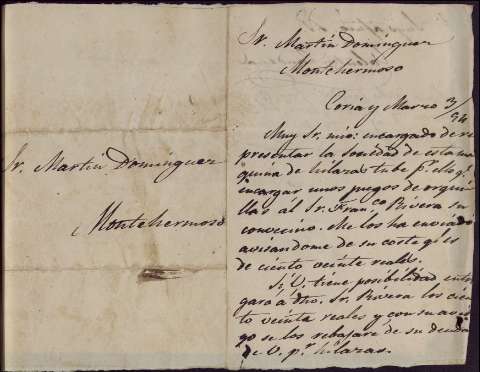 Sr. Martin Dominguez
Montehermoso
Sr. Martin Dominguez
Montehermoso
Coria y Marzo 3/94
Muy Sr. mio: encargado de re
presentar la Sociedad de esta ma
quina de hilazas tube pr. ello qe.
encargar unos juegos de orqui
llas al Sr. Franco. Rivera su
convecino. Me los ha enviado
avisándome de su coste qe. es
de ciento veinte reales.
Si V. tiene posibilidad entre
gará á dho. Sr. Rivera los cien
to veinte reales y con su avi
so se los rebajaré de su deuda
de V. pr. hilazas.